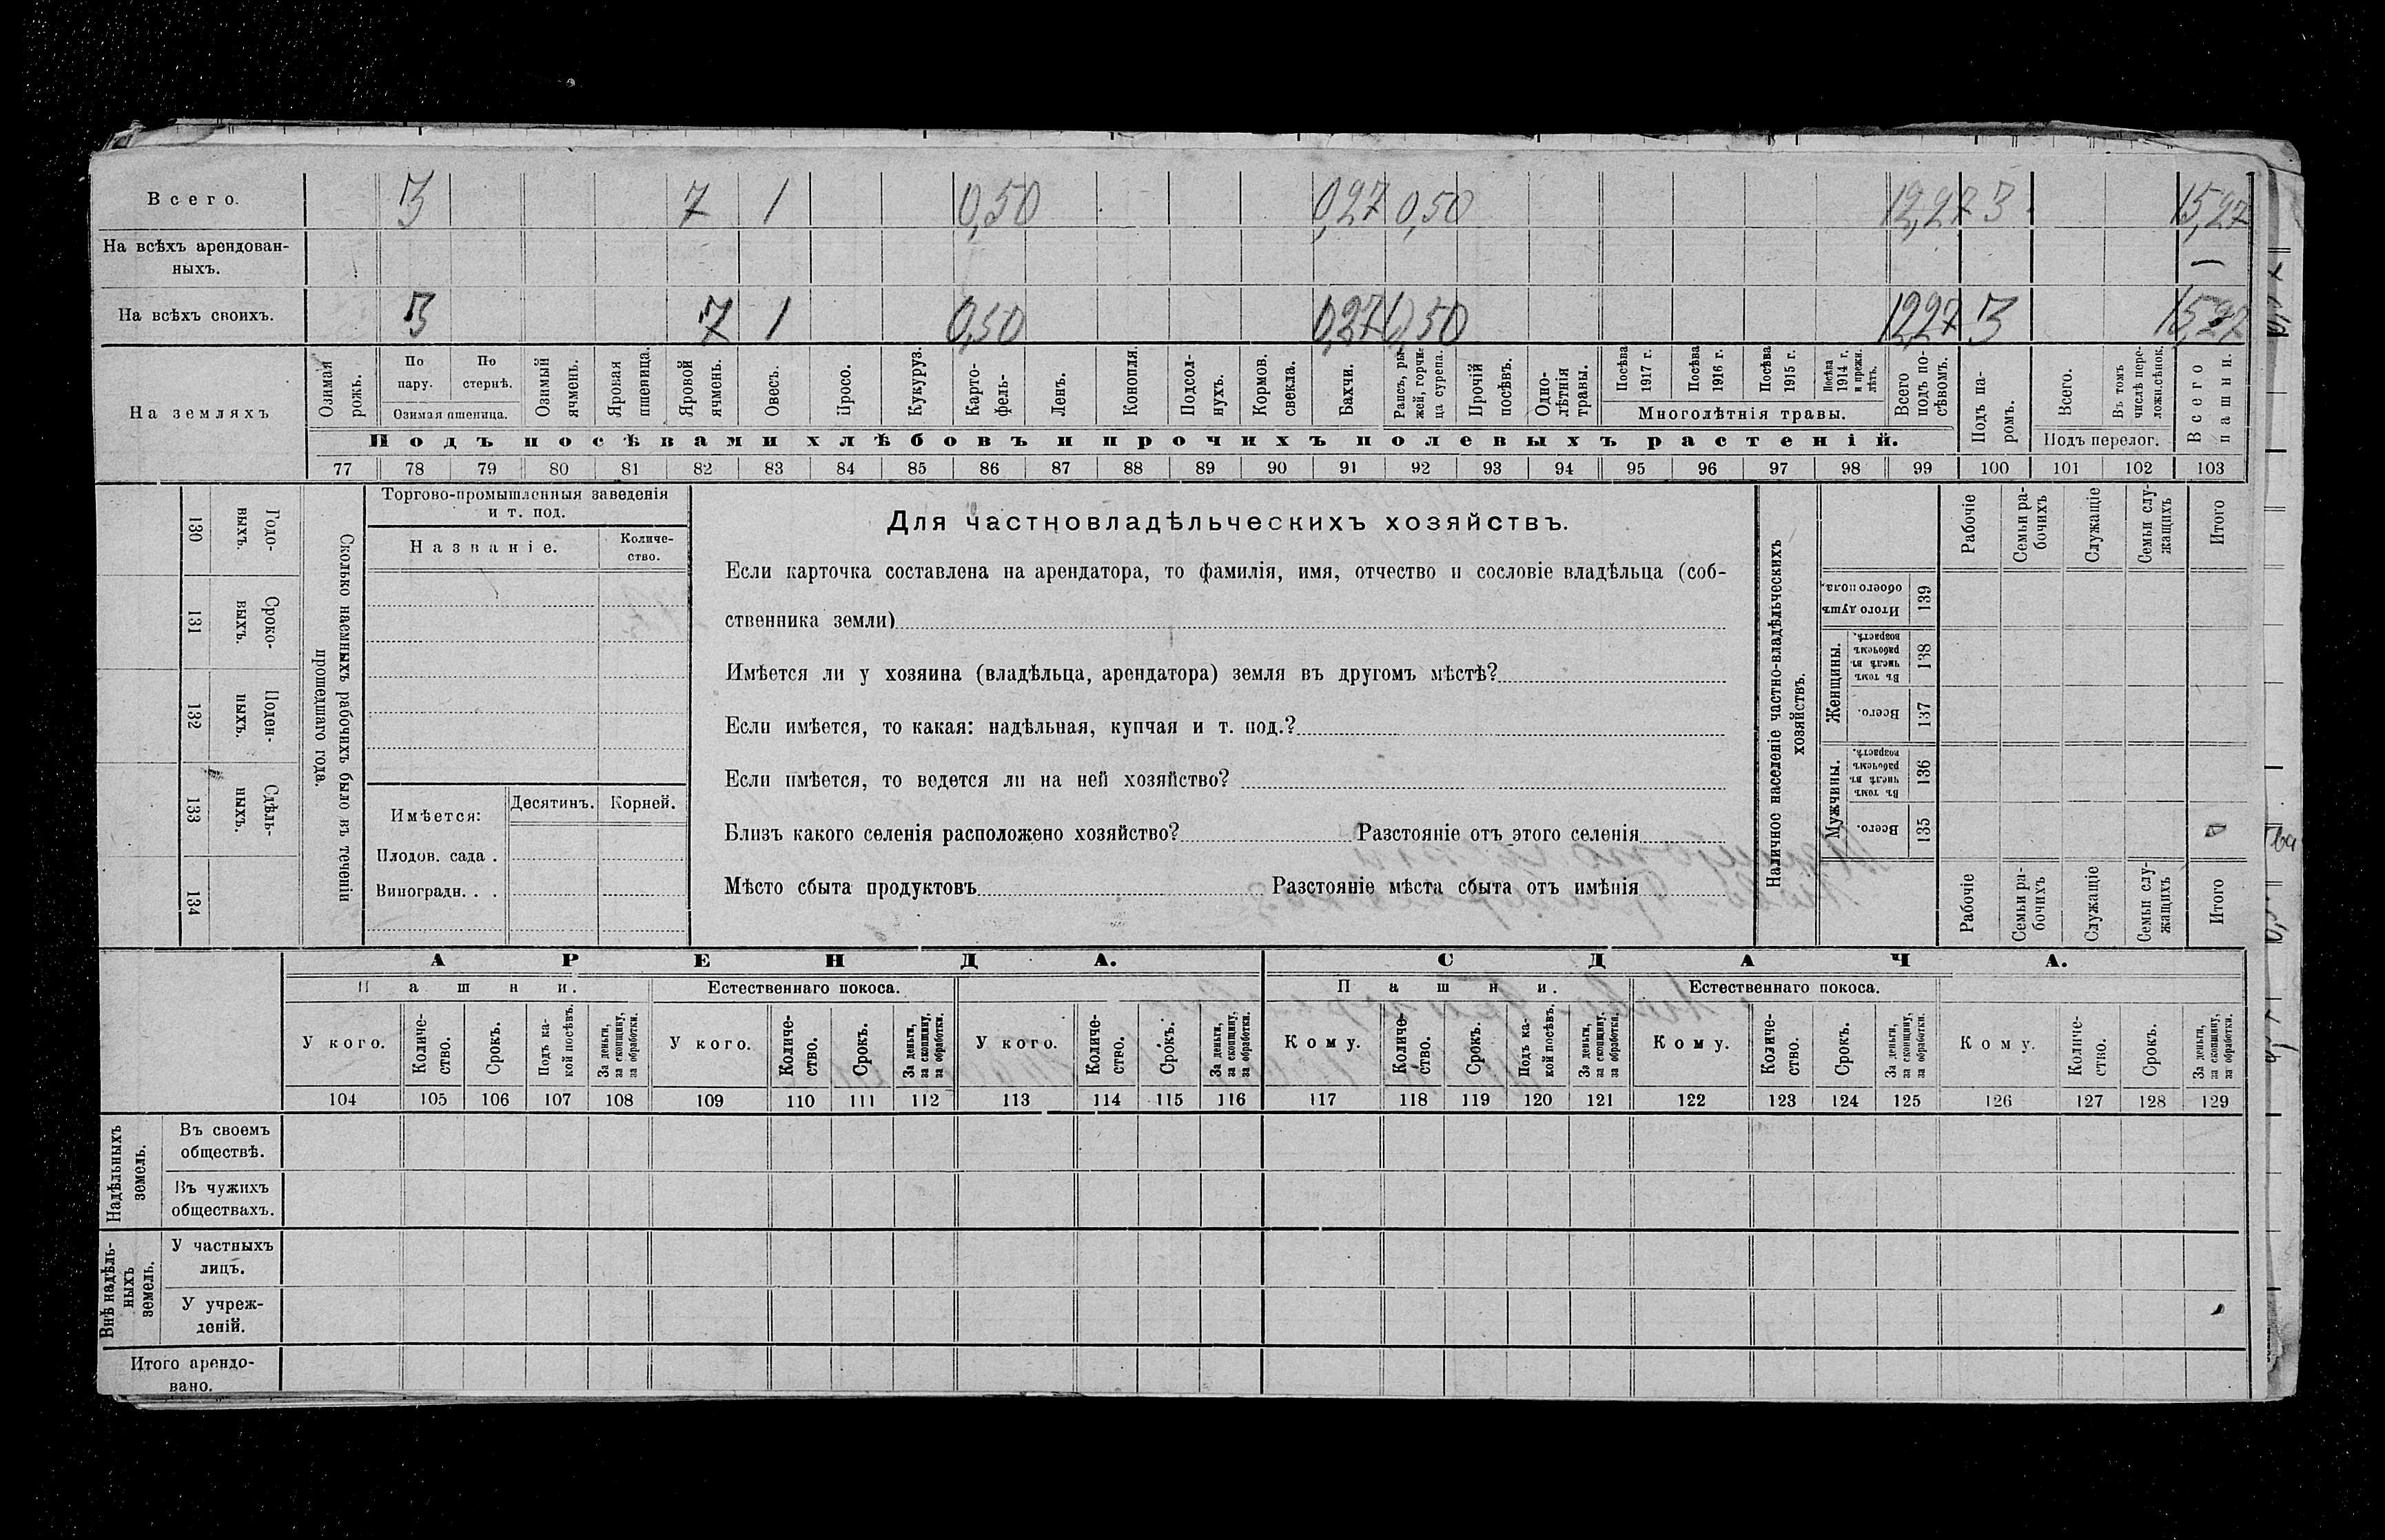 Всего. 3 7 1 0,50 0,27 0,50 12,27 3 15,27
На всѣхъ арендован-
ныхъ. —
На всѣхъ своихъ. 3 7 1 0,50 0,27 0,50 12,27 3 15,27
На земляхъ
Озимая рожь.
По пару.
По стернѣ.
Озимая пшеница.
Озимый ячмень.
Яровая пшеница.
Яровой ячмень.
Овесъ.
Просо.
Кукуруз.
Карто-
фель-
Ленъ.
Конопля.
Подсол-
нухъ.
Кормов.
свекла.
Бахчи.
Рапсъ, ры-
жей, горчи-
ца сурепа.
Прочій
посѣвъ.
Одно-
лѣтнія
травы.
Посѣва
1917 г.
Посѣва
1916 г.
Посѣва
1915 г.
Посѣва
1914 г.
и прежн.
лѣтъ.
Многолѣтнія травы.
Всего
подъ по-
сѣвомъ.
Подъ па-
ромъ.
Всего.
Въ томъ
числѣ пере-
ложн.сѣнок.
Подъ перелог.
Всего
пашни.
Подъ посѣвами хлѣбовъ и прочихъ полевыхъ растеній.
77 78 79 80 81 82 83 84 85 86 87 88 89 90 91 92 93 94 95 96 97 98 99 100 101 102 103
Сколько наемныхъ рабочихъ было въ теченіи
прошедшаго года.
Годо-
выхъ.
130
Сроко-
выхъ.
131
Поден-
ныхъ.
132
Сдѣль-
ныхъ.
133
134
Торгово-промышленныя заведенія
и т. под.
Названіе.
Количе-
ство.
Имѣется:
Десятинъ.
Корней.
Плодов. сада .
Виноградн. . .
Для частновладѣльческихъ хозяйствъ.
Если карточка составлена на арендатора, то фамилія, имя, отчество и сословіе владѣльца (соб-
ственника земли)
Имѣется ли у хозяина (владѣльца, арендатора) земля въ другомъ мѣстѣ?
Если имѣется, то какая: надѣльная, купчая и т. под.?
Если имѣется, то ведется ли на ней хозяйство?
Близъ какого селенія расположено хозяйство? Разстояніе отъ этого селенія
Мѣсто сбыта продуктовъ Разстояніе мѣста сбыта отъ имѣнія
Наличное населеніе частно-владѣльческихъ
хозяйствъ.
Рабочіе
Семьи ра-
бочихъ
Служащіе
Семьи слу-
жащихъ
Итого
Итого душъ
обоего пола.
139
Женщины.
Въ томъ
числѣ въ
рабочемъ
возрастѣ.
138
Всего.
137
Мужчины.
Въ томъ
числѣ въ
рабочемъ
возрастѣ.
136
Всего.
135
Рабочіе
Семьи ра-
бочихъ
Служащіе
Семьи слу-
жащихъ
Итого
АРЕНДА.
СДАЧА.
Пашни.
Естественнаго покоса.
Пашни.
Естественнаго покоса.
У кого.
Количе-
ство.
Срокъ.
Подъ ка-
кой посѣвъ.
За деньги,
за скопщину,
за обработки.
У кого.
Количе-
ство.
Срокъ.
За деньги,
за скопщину,
за обработки.
У кого.
Количе-
ство.
Срокъ.
За деньги,
за скопщину,
за обработки.
Кому.
Количе-
ство.
Срокъ.
Подъ ка-
кой посѣвъ.
За деньги,
за скопщину.
за обработки.
Кому.
Количе-
ство.
Срокъ.
За деньги,
за скопщину,
за обработки.
Кому.
Количе-
ство.
Срокъ.
За деньги,
за скопщину,
за обработки.
104 105 106 107 108 109 110 111 112 113 114 115 116 117 118 119 120 121 122 123 124 125 126 127 128 129
Надѣльныхъ
земель.
Въ своемъ
обществѣ.
Въ чужихъ
обществахъ.
Внѣ надѣль-
ныхъ
земель.
У частныхъ
лицъ.
У учреж-
деній.
Итого арендо-
вано.